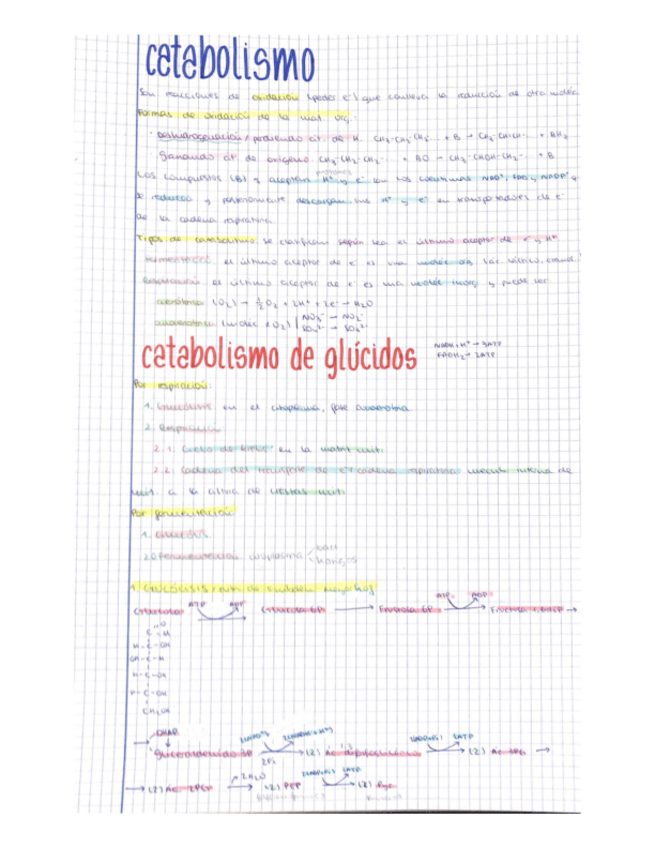 catabolismo
Son reacciones de oxidación (perder e⁻) que conlleva la reducción de otra moléc.
Formas de oxidación de la mat. org.:
· Deshidrogenación / perdiendo át. de H. CH₃-CH₂-CH₂... + B → CH₃-CH=CH-... + BH₂
· Ganando át. de oxígeno. CH₃-CH₂-CH₂- + BO → CH₃-CHOH-CH₂-... + B
Los compuestos (B) y aceptan H⁺ y e⁻ son las coenzimas NAD⁺, FAD y NADP⁺ y
se reducen y posteriormente descargan sus H⁺ y e⁻ en transportadores de e⁻
de la cadena respiratoria.
Tipos de catabolismo: se clasifican según sea el último aceptor de e⁻ y H⁺
el último aceptor de e⁻ es una moléc. org.
Respiración: el último aceptor de e⁻ es una moléc. inorg. y puede ser
aeróbica (O₂) → ½O₂ + 2H⁺ + 2e⁻ → H₂O
anaeróbica (moléc ≠ O₂) NO₃⁻ → NO₂⁻
catabolismo de glúcidos
NADH+H⁺ → 3ATP
FADH₂ → 2ATP
Por respiración:
1. Glucólisis en el citoplasma, fase anaerobia
2. Respiración
2.1. Ciclo de Krebs en la matriz mit.
2.2. Cadena del transporte de e⁻ o cadena respiratoria interna de
mit. a la altura de crestas mit.
Por fermentación
1. Glucólisis
2. Fermentación citoplasma
hongos
1. GLUCÓLISIS / ruta de
Glucosa ATP ADP Glucosa 6P → Fructosa 6P ATP ADP Fructosa →
C-H
H-C-OH
OH-C-H
H-C-OH
H-C-OH
CH₂OH
→ DHAP
Gliceraldehído 3P 2Pi → (2) Ác. 2ATP → (2) Ác. →
→ (2) Ác. 2PG → 2H₂O (2) PEP → 2ATP (2)